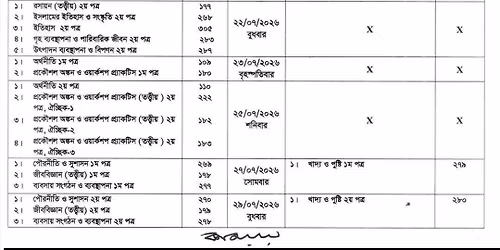 ১। রসায়ন (তত্ত্বীয়) ২য় পত্র ১৭৭
২। ইসলামের ইতিহাস ও সংস্কৃতি ২য় পত্র ২৬৮
৩। ইতিহাস ২য় পত্র ৩০৫
৪। গৃহ ব্যবস্থাপনা ও পারিবারিক জীবন ২য় পত্র ২৮৩
৫। উৎপাদন ব্যবস্থাপনা ও বিপণন ২য় পত্র ২৮৭
২২/০৭/২০২৬
বুধবার
X X
১। অর্থনীতি ১ম পত্র ১০৯
২। প্রকৌশল অঙ্কন ও ওয়ার্কশপ প্র্যাকটিস ১ম পত্র ১৮০
২৩/০৭/২০২৬
বৃহস্পতিবার
X X
১। অর্থনীতি ২য় পত্র ১১০
২। প্রকৌশল অঙ্কন ও ওয়ার্কশপ প্র্যাকটিস (তত্ত্বীয়) ২য় ২২২
পত্র, ঐচ্ছিক-১
৩। প্রকৌশল অঙ্কন ও ওয়ার্কশপ প্র্যাকটিস (তত্ত্বীয় ) ২য় ১৮২
পত্র, ঐচ্ছিক-২
৪। প্রকৌশল অঙ্কন ও ওয়ার্কশপ প্র্যাকটিস (তত্ত্বীয় ) ২য় ১৮৩
পত্র, ঐচ্ছিক-৩
২৫/০৭/২০২৬
শনিবার
X X
১। পৌরনীতি ও সুশাসন ১ম পত্র ২৬৯
২। জীববিজ্ঞান (তত্ত্বীয়) ১ম পত্র ১৭৮
৩। ব্যবসায় সংগঠন ও ব্যবস্থাপনা ১ম পত্র ২৭৭
২৭/০৭/২০২৬
সোমবার
১। খাদ্য ও পুষ্টি ১ম পত্র ২৭৯
১। পৌরনীতি ও সুশাসন ২য় পত্র ২৭০
২। জীববিজ্ঞান (তত্ত্বীয়) ২য় পত্র ১৭৯
৩। ব্যবসায় সংগঠন ও ব্যবস্থাপনা ২য় পত্র ২৭৮
২৯/০৭/২০২৬
বুধবার
১। খাদ্য ও পুষ্টি ২য় পত্র ২৮০